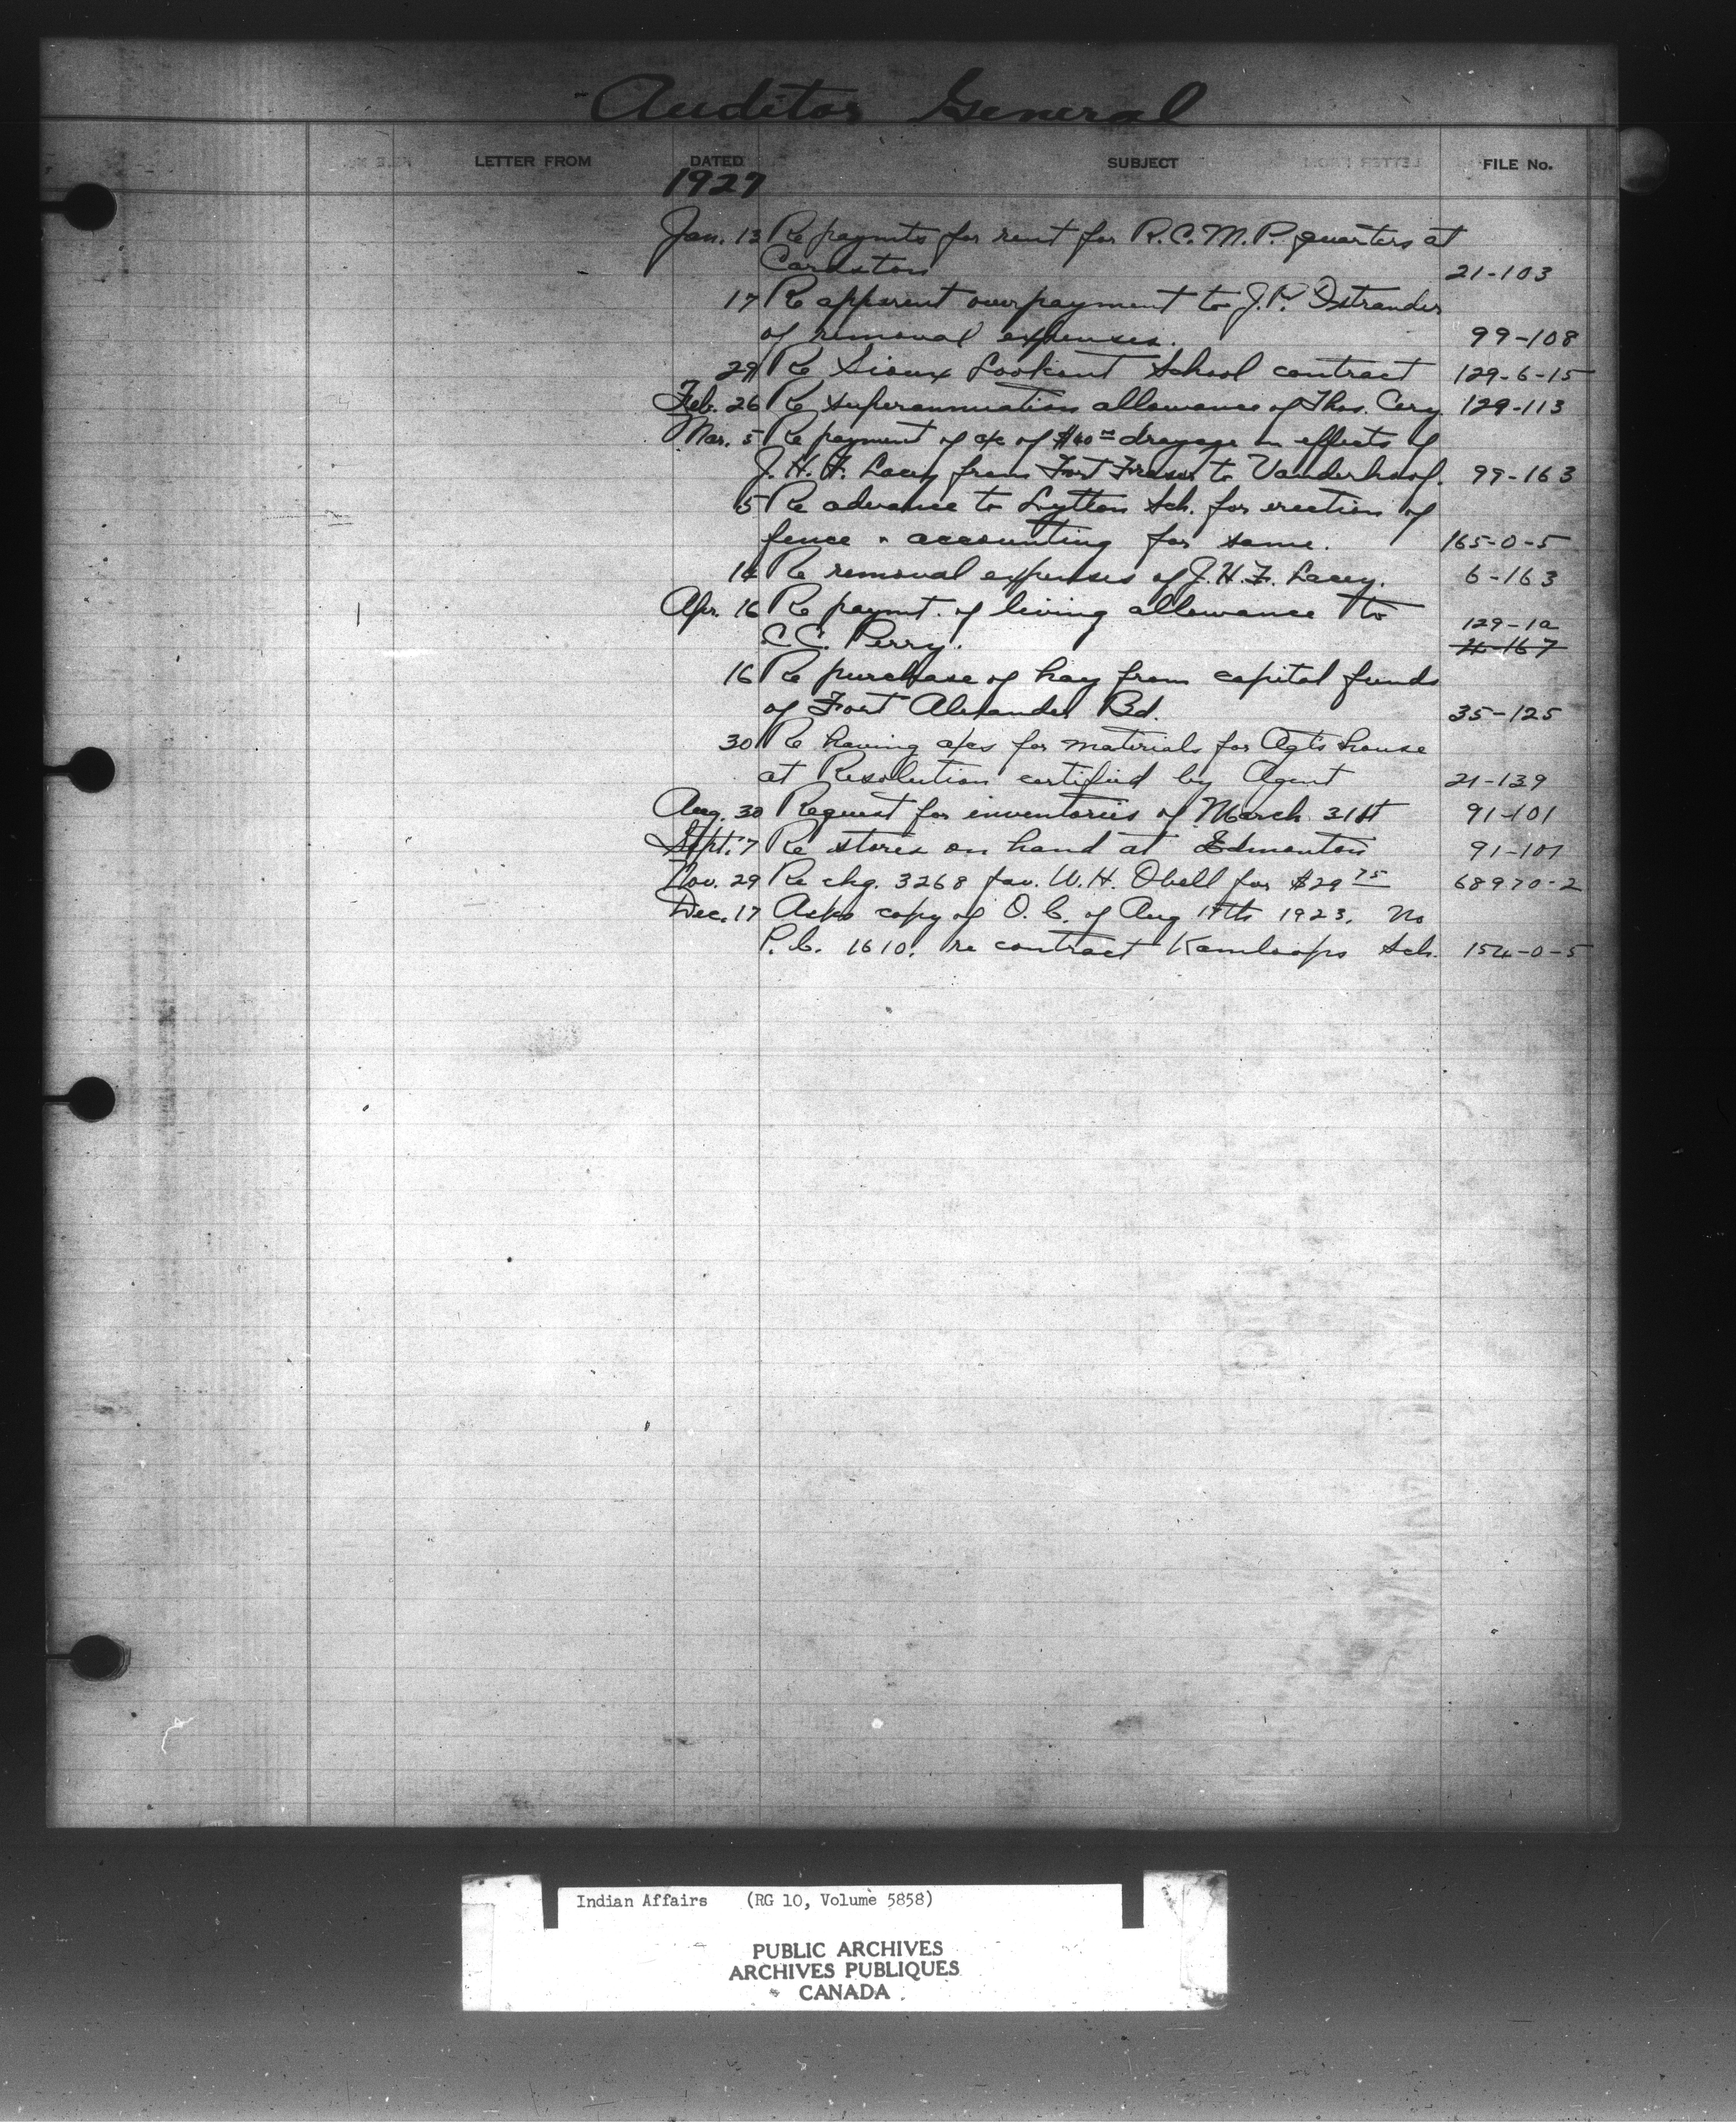 Auditor General
LETTER FROM DATED SUBJECT FILE No.
1927
Jan. 13 Re paymts for rent for R.C.M.P. quarters at
Cardston 21-103
17 Re apparent overpayment to J.P. Ostrander
of removal expenses. 99-108
29 Re Sioux Lookout School contract 129-6-15
Feb. 26 Re superannuation allowance of Thos. Cory 129-113
Mar. 5 Re payment of a/c of $40 00 drayage on effects of
J.H.F. Lacey from Fort Fraser to Vanderhoof. 99-163
5 Re advance to Lytton Sch. for erection of
fence & accounting for same. 165-0-5
14 Re removal expenses of J.H.F. Lacey. 6-163
Apr. 16 Re paymt. of living allowance to 129-1a
C.C. Perry. -167
16 Re purchase of hay from capital funds
of Fort Alexander Bd. 35-125
30 Re having a/cs for materials for Agt's house
at Resolution certified by Agent 21-139
Aug. 30 Request for inventories of March 31st 91-101
Sept. 7 Re stores on hand at Edmonton 91-101
Nov. 29 Re chq. 3268 fav. W.H. Obell for $29 75 68970-2
Dec. 17 Asks copy of O.C. of Aug 17th 1923. No
P.C. 1610. re contract Kamloops Sch. 154-0-5
Indian Affairs (RG 10, Volume 5858)
PUBLIC ARCHIVES
ARCHIVES PUBLIQUES
CANADA